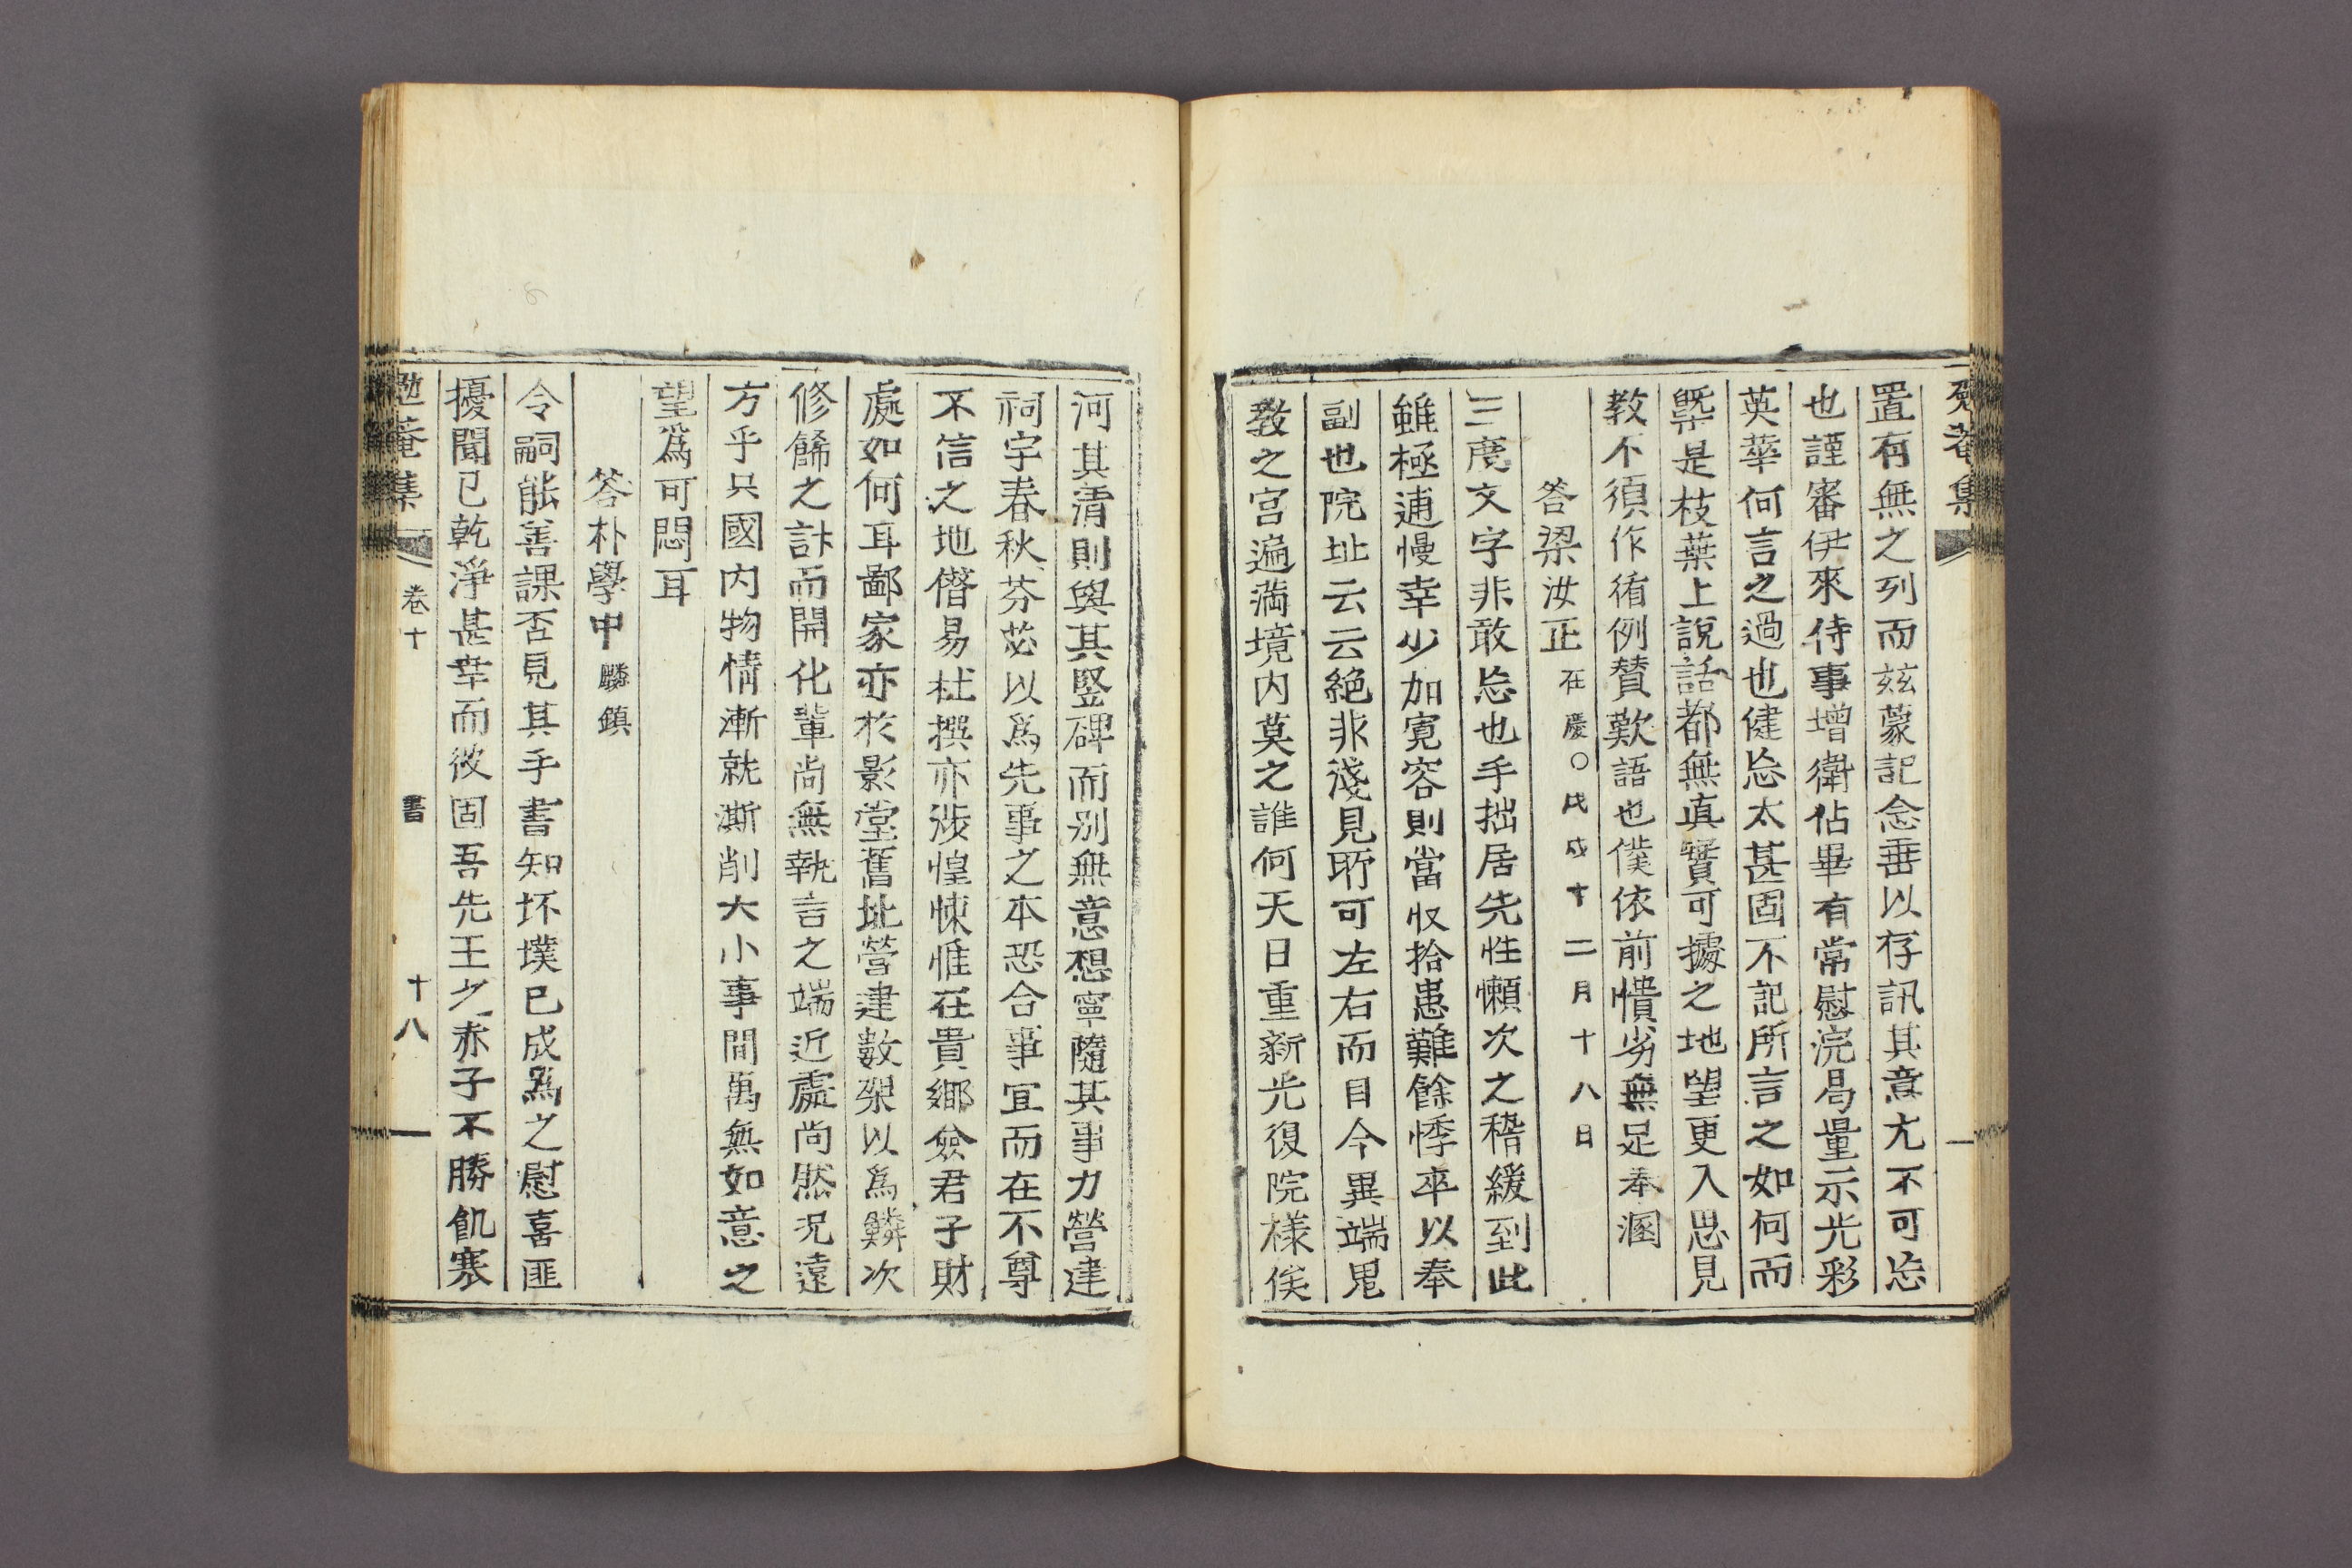 勉菴集
置有無之列而玆蒙記念垂以存訊其意尤不可忘
也謹審伊來侍事增衛佔畢有常慰浣曷量示光彩
英華何言之過也健忘太甚固不記所言之如何而
槩是枝葉上說話都無眞實可據之地望更入思見
教不須作循例賛歎語也僕依前憒劣無足奉溷
答梁汝正 在慶○戊戌十二月十八日
三度文字非敢忘也手拙居先性懶次之稽緩到此
雖極逋慢幸少加寬容則當收拾患難餘悸卒以奉
副也院址云云絕非淺見所可左右而目今異端鬼
教之宮遍滿境內莫之誰何天日重新光復院樣俟
河其淸則與其竪碑而別無意想寧隨其事力營建
祠宇春秋芬苾以爲先事之本恐合事宜而在不尊
不信之地僭易杜撰亦涉惶悚惟在貴鄉僉君子財
處如何耳鄙家亦於影堂舊址營建數架以爲鱗次
修餙之計而開化輩尚無執言之端近處尚然况遠
方乎只國內物情漸就澌削大小事間萬無如意之
望爲可悶耳
答朴學中 麟鎭
令嗣能善課否見其手書知坏墣已成爲之慰喜匪
擾聞已乾淨甚幸而彼固吾先王之赤子不勝飢寒
勉菴集 卷十 書 十八